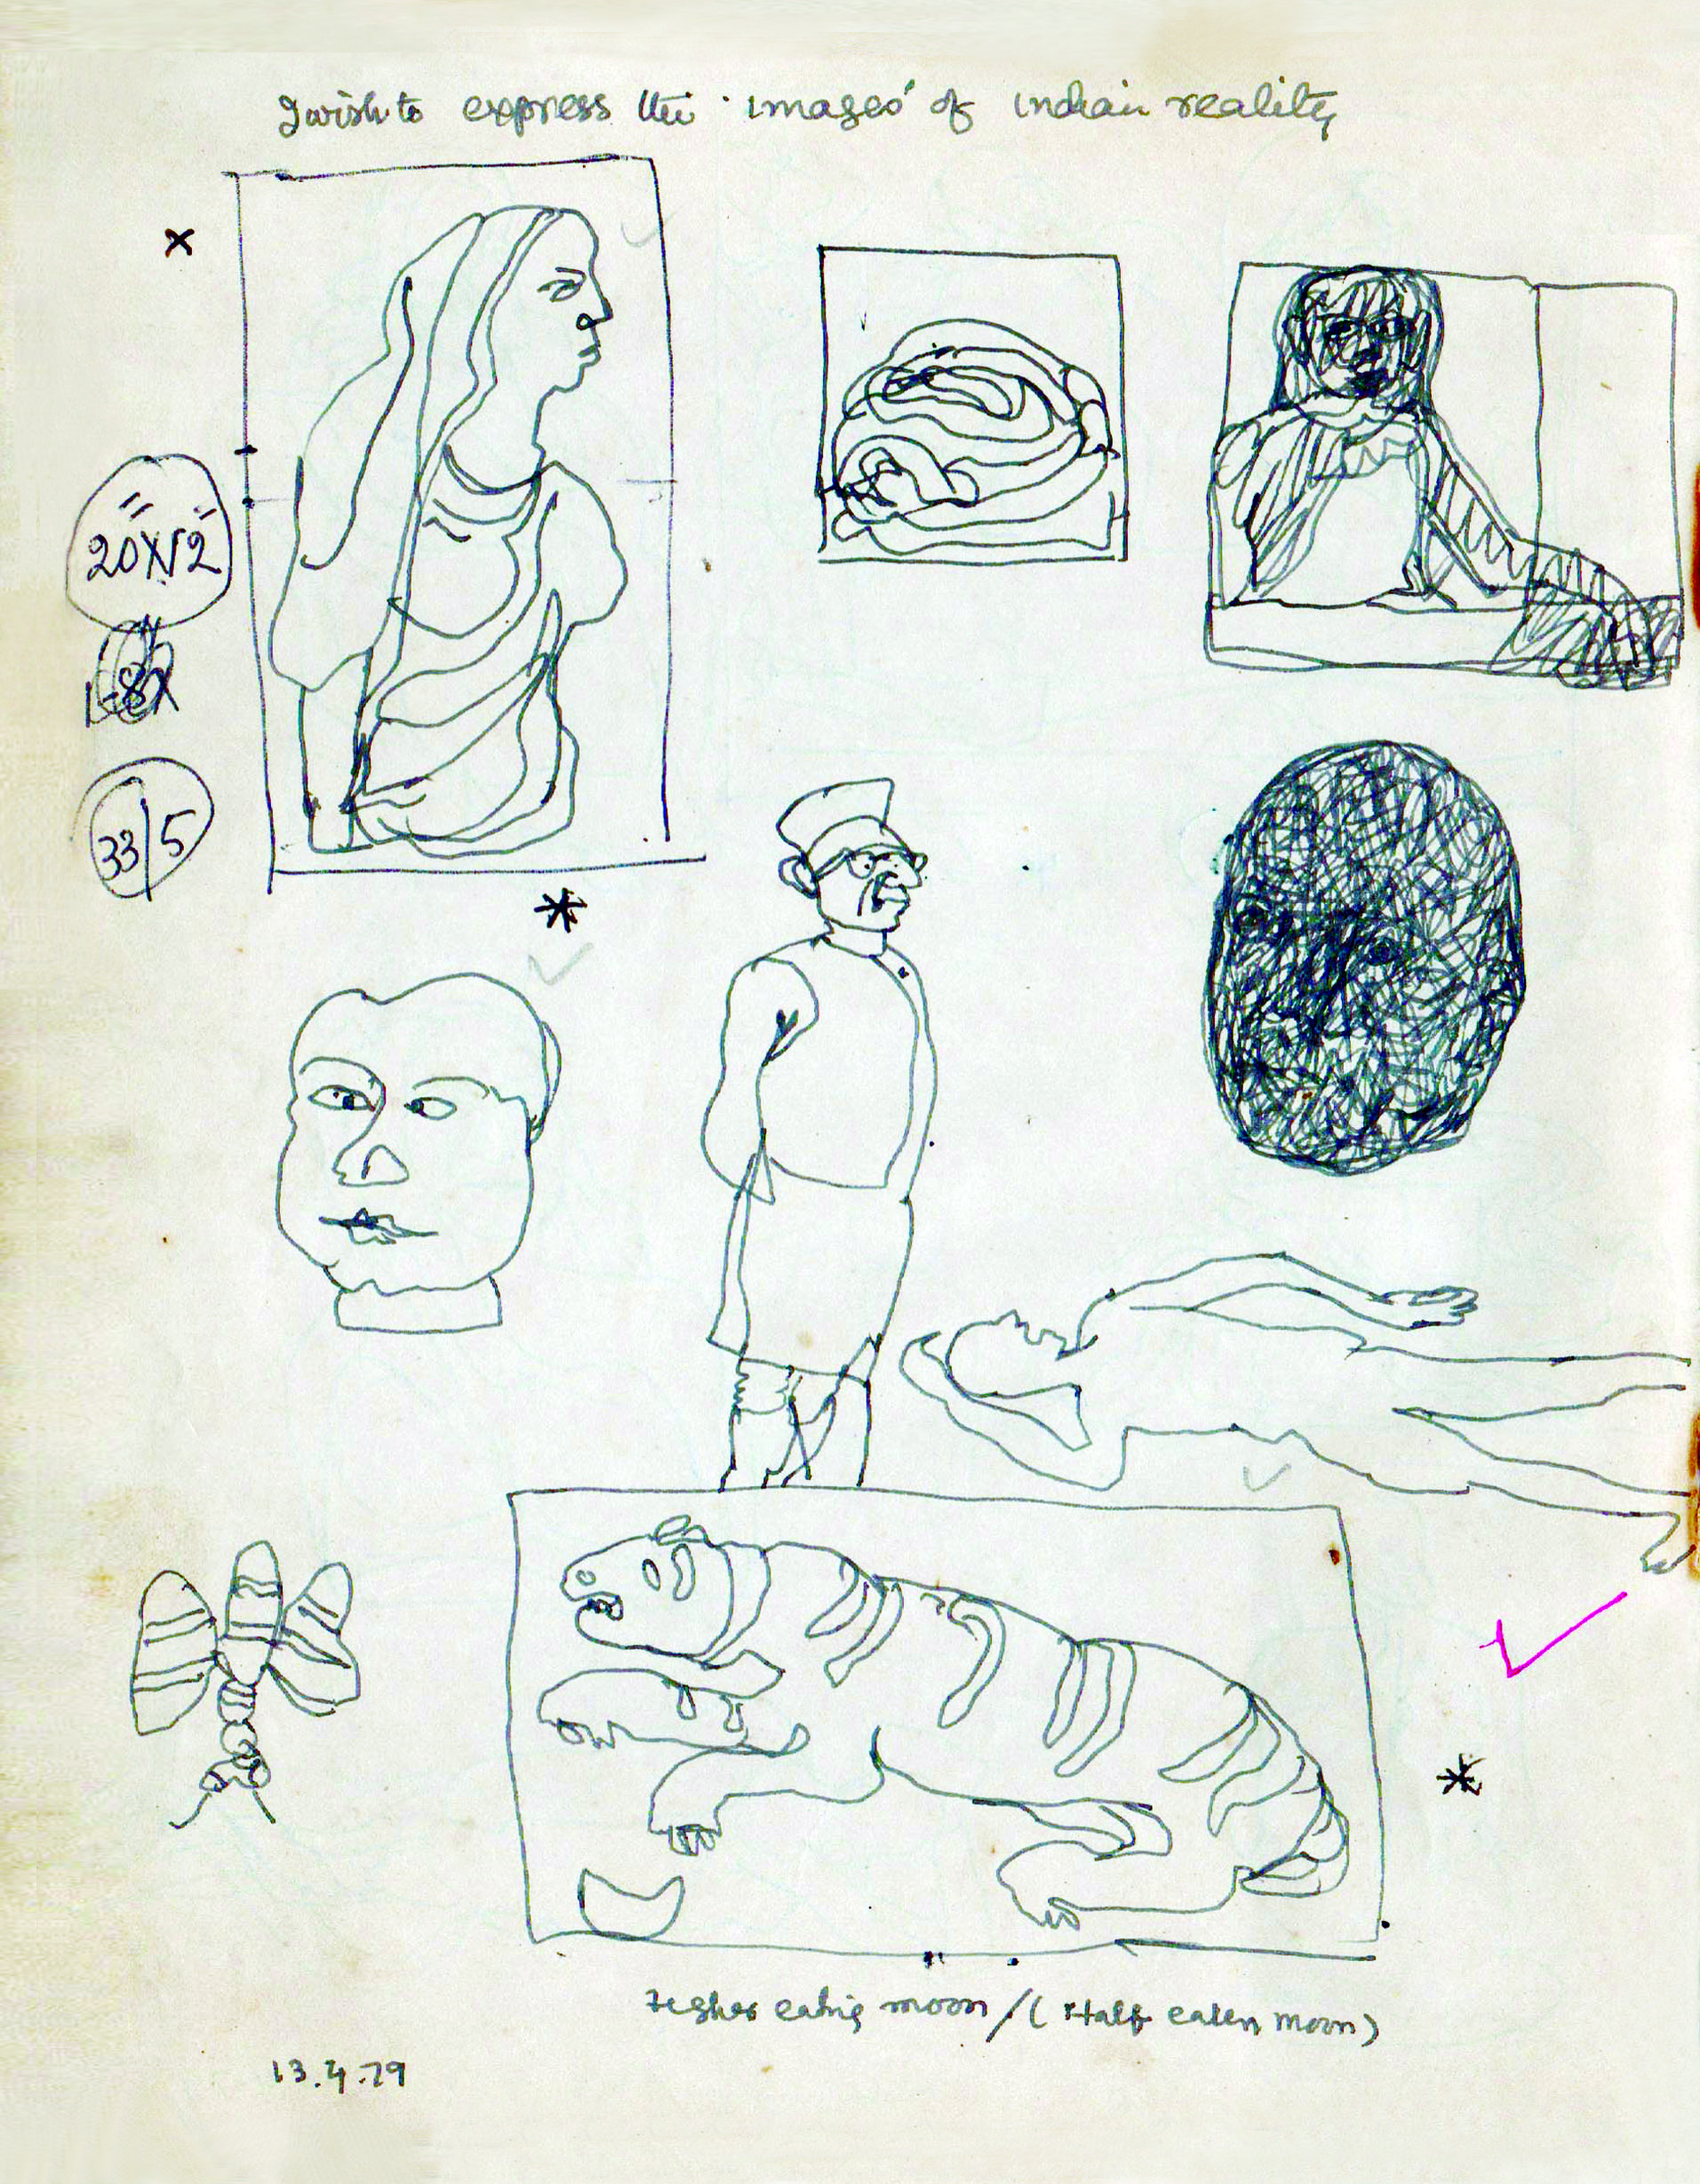 I wish to express the 'images' of indian reality
20"X12"
33|5
eating moon / ( Half eaten moon)
13.4.79